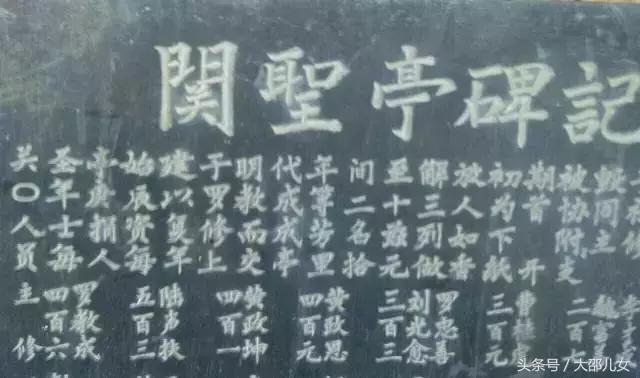 関聖亭碑記
关圣亭始建于明代年间至解放初期被毁
〇年庚辰以罗教成等二十三人为首协同
人士捐资复修而成芳名兹列如下附主修
员每人每年上交亭里拾元做香纸开支
主修
罗教成
四百六
陆声扶
五百三
黄政坤
四百一
黄政思
四百元
罗忠喜
刘光愈
三百三
三百元
二百
头条号/大邵儿女